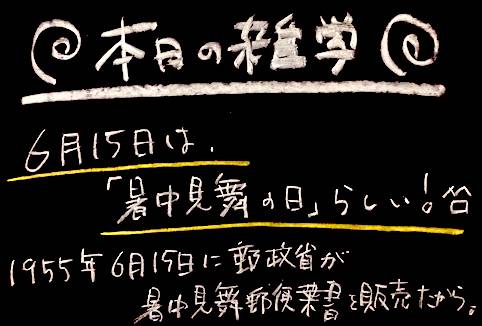 本日の雑学
6月15日は、
「暑中見舞の日」らしい!
1955年6月15日に郵政省が
暑中見舞郵便葉書を販売たから。